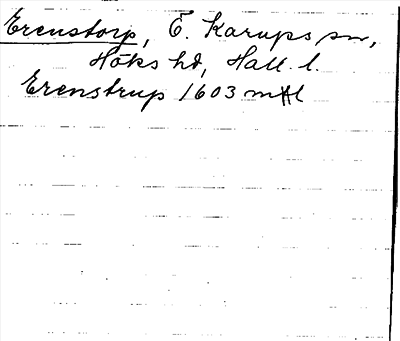 Erenstorp, Ö. Karups sn,
Höks hd, Hall. l.
Erenstrup 1603 mtl